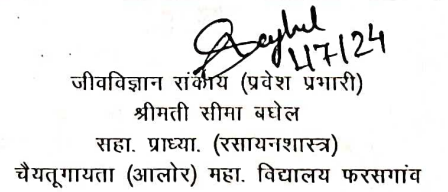 4/7/24
जीवविज्ञान संकाय (प्रवेश प्रभारी)
श्रीमती सीमा बघेल
सहा. प्राध्या. (रसायनशास्त्र)
चैयतूगायता (आलोर) महा. विद्यालय फरसगांव